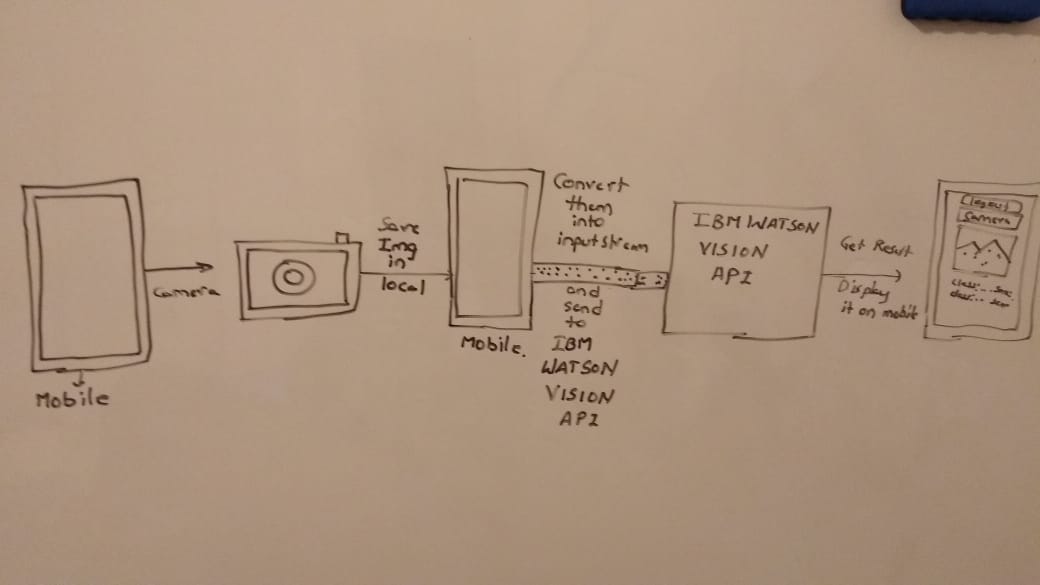 Mobile
Camera
Save
Img
in
local
Mobile.
Convert
them
into
inputstream
and
send
to
IBM
WATSON
VISION
API
IBM WATSON
VISION
API
Get Result
Display
it on mobile
logout
Camera
class:...
class:...